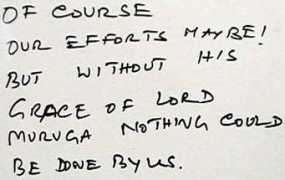 OF COURSE
OUR EFFORTS MAYBE!
BUT WITHOUT HIS
GRACE OF LORD
MURUGA NOTHING COULD
BE DONE BY US.